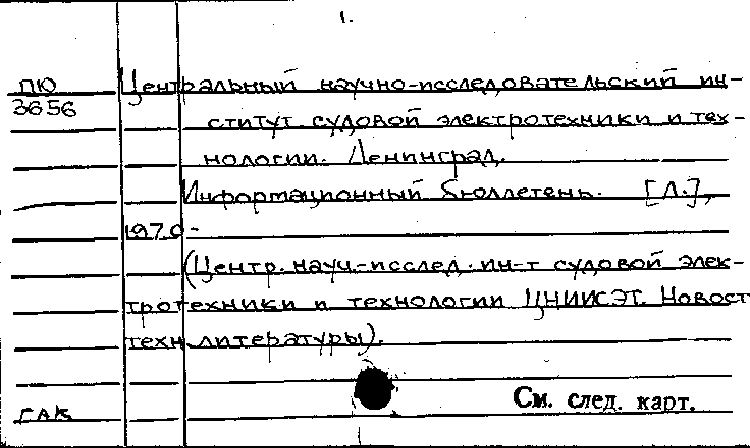 1.
ПЮ Центральный научно-исследовательский ин-
3656
ститут судовой электротехники и тех-
нологии. Ленинград.
Информационный бюллетень. [Л.],
1970-
(Центр. науч.-исслед. ин-т судовой элек-
тротехники и технологии ЦНИИСЭТ. Новост
техн. литературы).
См. след. карт.
ГАК